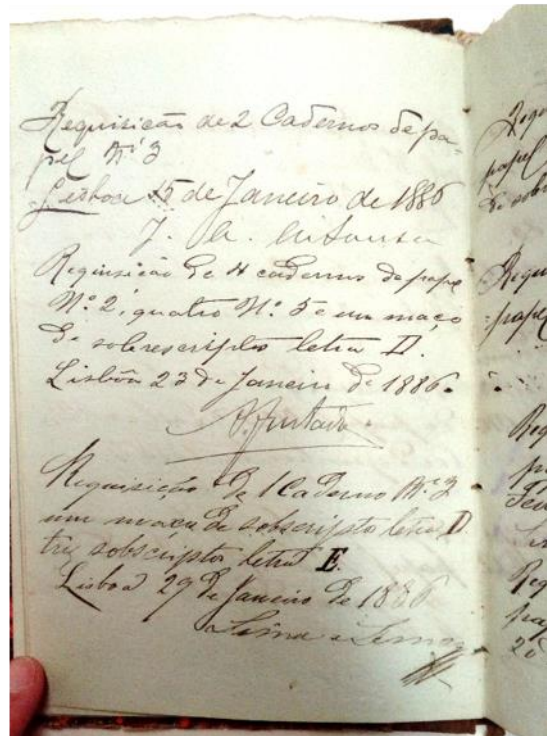 Requisicão de 2 Cadernos de pa-
pel Nº 3
Lisboa 15 de Janeiro de 1886
J. A.
Requisicão de 4 cadernos de papel
Nº. 2, quatro Nº. 5 e um maço
de sobrescriptos letra D.
Lisbôa 23 de Janeiro de 1886.
A. Furtado
Requisicão de 1 Caderno Nº 3
um maço de sobscripto letra D.
trez sobscriptos letra E.
Lisboa 29 de Janeiro de 1886
Lima e Lemos
papel
de
Requi
papel
Req
Req
pap
20